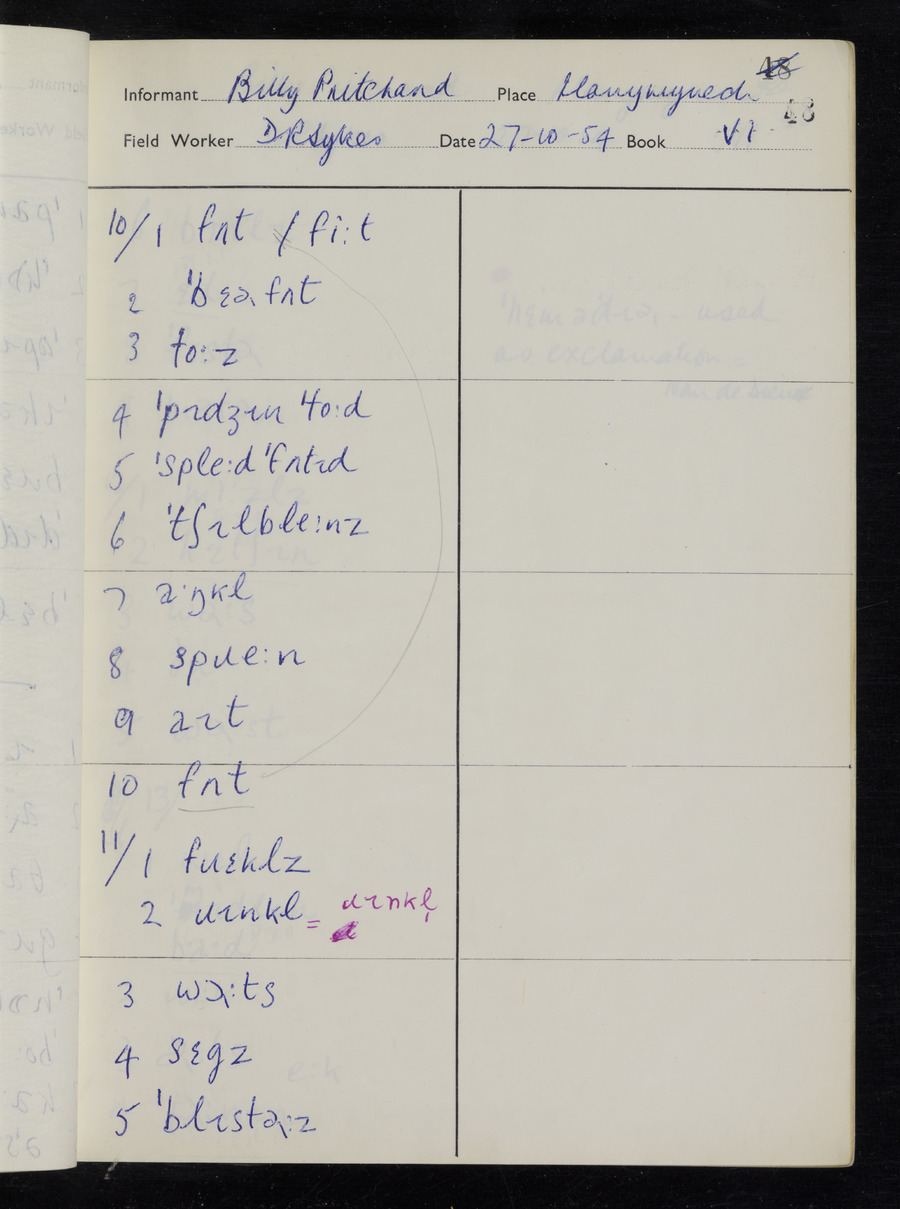 48
Informant Billy Pritchard Place Llanymynech
48
Field Worker DRSykes Date 27-10-54 Book VI
10/1 fʌt / fiːt
2 'bɛəɹ fʌt
3 toːz
4 'pɪdʒɪn 'toːd
5 'spleːd 'fʌtɪd
6 'tʃɪlbleːnz
7 aˑŋkl
8 spɹeːn
9
10 fʌt
11/1 fɹɛklz
2 ɹɪnkl = ɹɪnkl̩
3
4 sɛgz
5